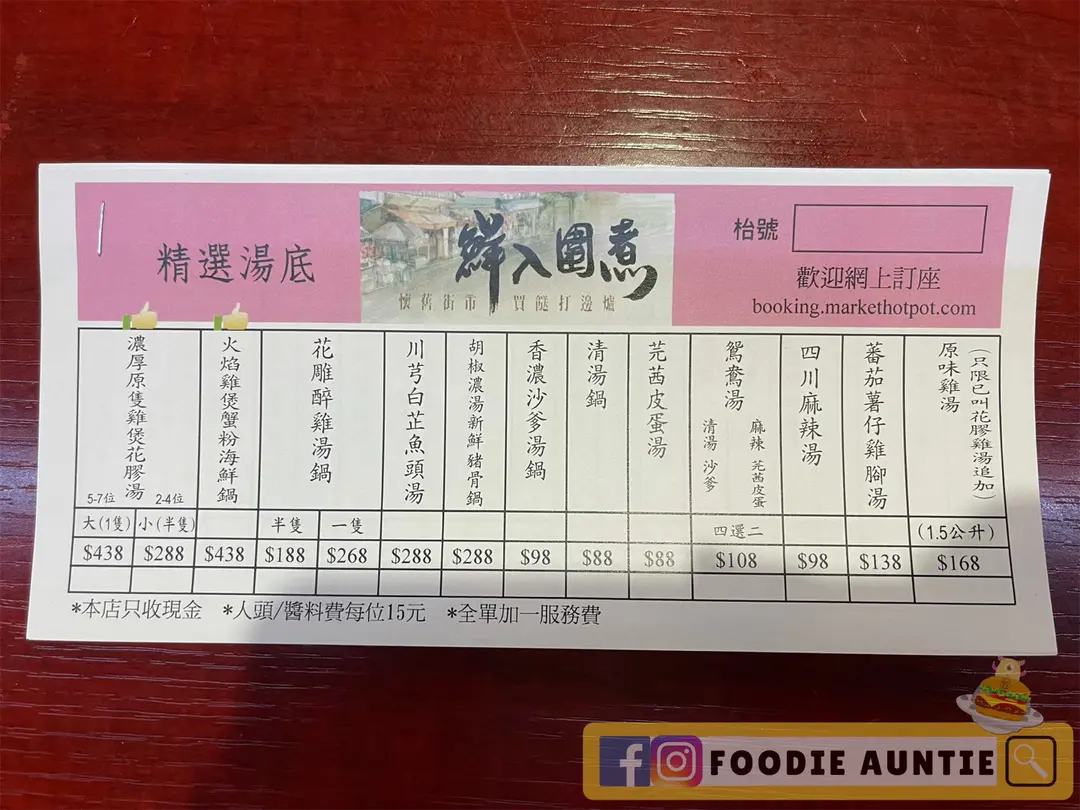 精選湯底
鮮入圍煮
懷舊街市 買餸打邊爐
枱號
歡迎網上訂座
booking.markethotpot.com
濃厚原隻雞煲花膠湯
5-7位 2-4位
火焰雞煲蟹粉海鮮鍋
花雕醉雞湯鍋
川芎白芷魚頭湯
胡椒濃湯新鮮豬骨鍋
香濃沙爹湯鍋
清湯鍋
芫茜皮蛋湯
鴛鴦湯
麻辣 芫茜皮蛋
清湯 沙爹
四川麻辣湯
蕃茄薯仔雞腳湯
原味雞湯
(只限已叫花膠雞湯追加)
大(1隻) 小(半隻) 半隻 一隻 四選二 (1.5公升)
$438 $288 $438 $188 $268 $288 $288 $98 $88 $88 $108 $98 $138 $168
*本店只收現金 *人頭/醬料費每位15元 *全單加一服務費
FOODIE AUNTIE